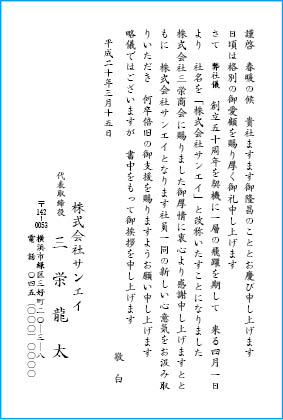 謹啓　春暖の候　貴社ますます御隆昌のこととお慶び申し上げます
日頃は格別の御愛顧を賜り厚く御礼申し上げます
さて　弊社儀　創立五十周年を契機に一層の飛躍を期して　来る四月一日
より　社名を「株式会社サンエイ」と改称いたすことになりました
株式会社三栄商会に賜りました御厚情に衷心より感謝申し上げますとと
もに　株式会社サンエイとなります社員一同の新しい心意気をお汲み取
りいただき　何卒倍旧の御支援を賜りますようお願い申し上げます
略儀ではございますが　書中をもって御挨拶を申し上げます
敬白
平成二十年三月十五日
株式会社サンエイ
代表取締役　三栄龍太
〒142-0053　横浜市緑区三好町二〇ー三ー八
電話〇四五(〇〇〇)〇〇〇〇